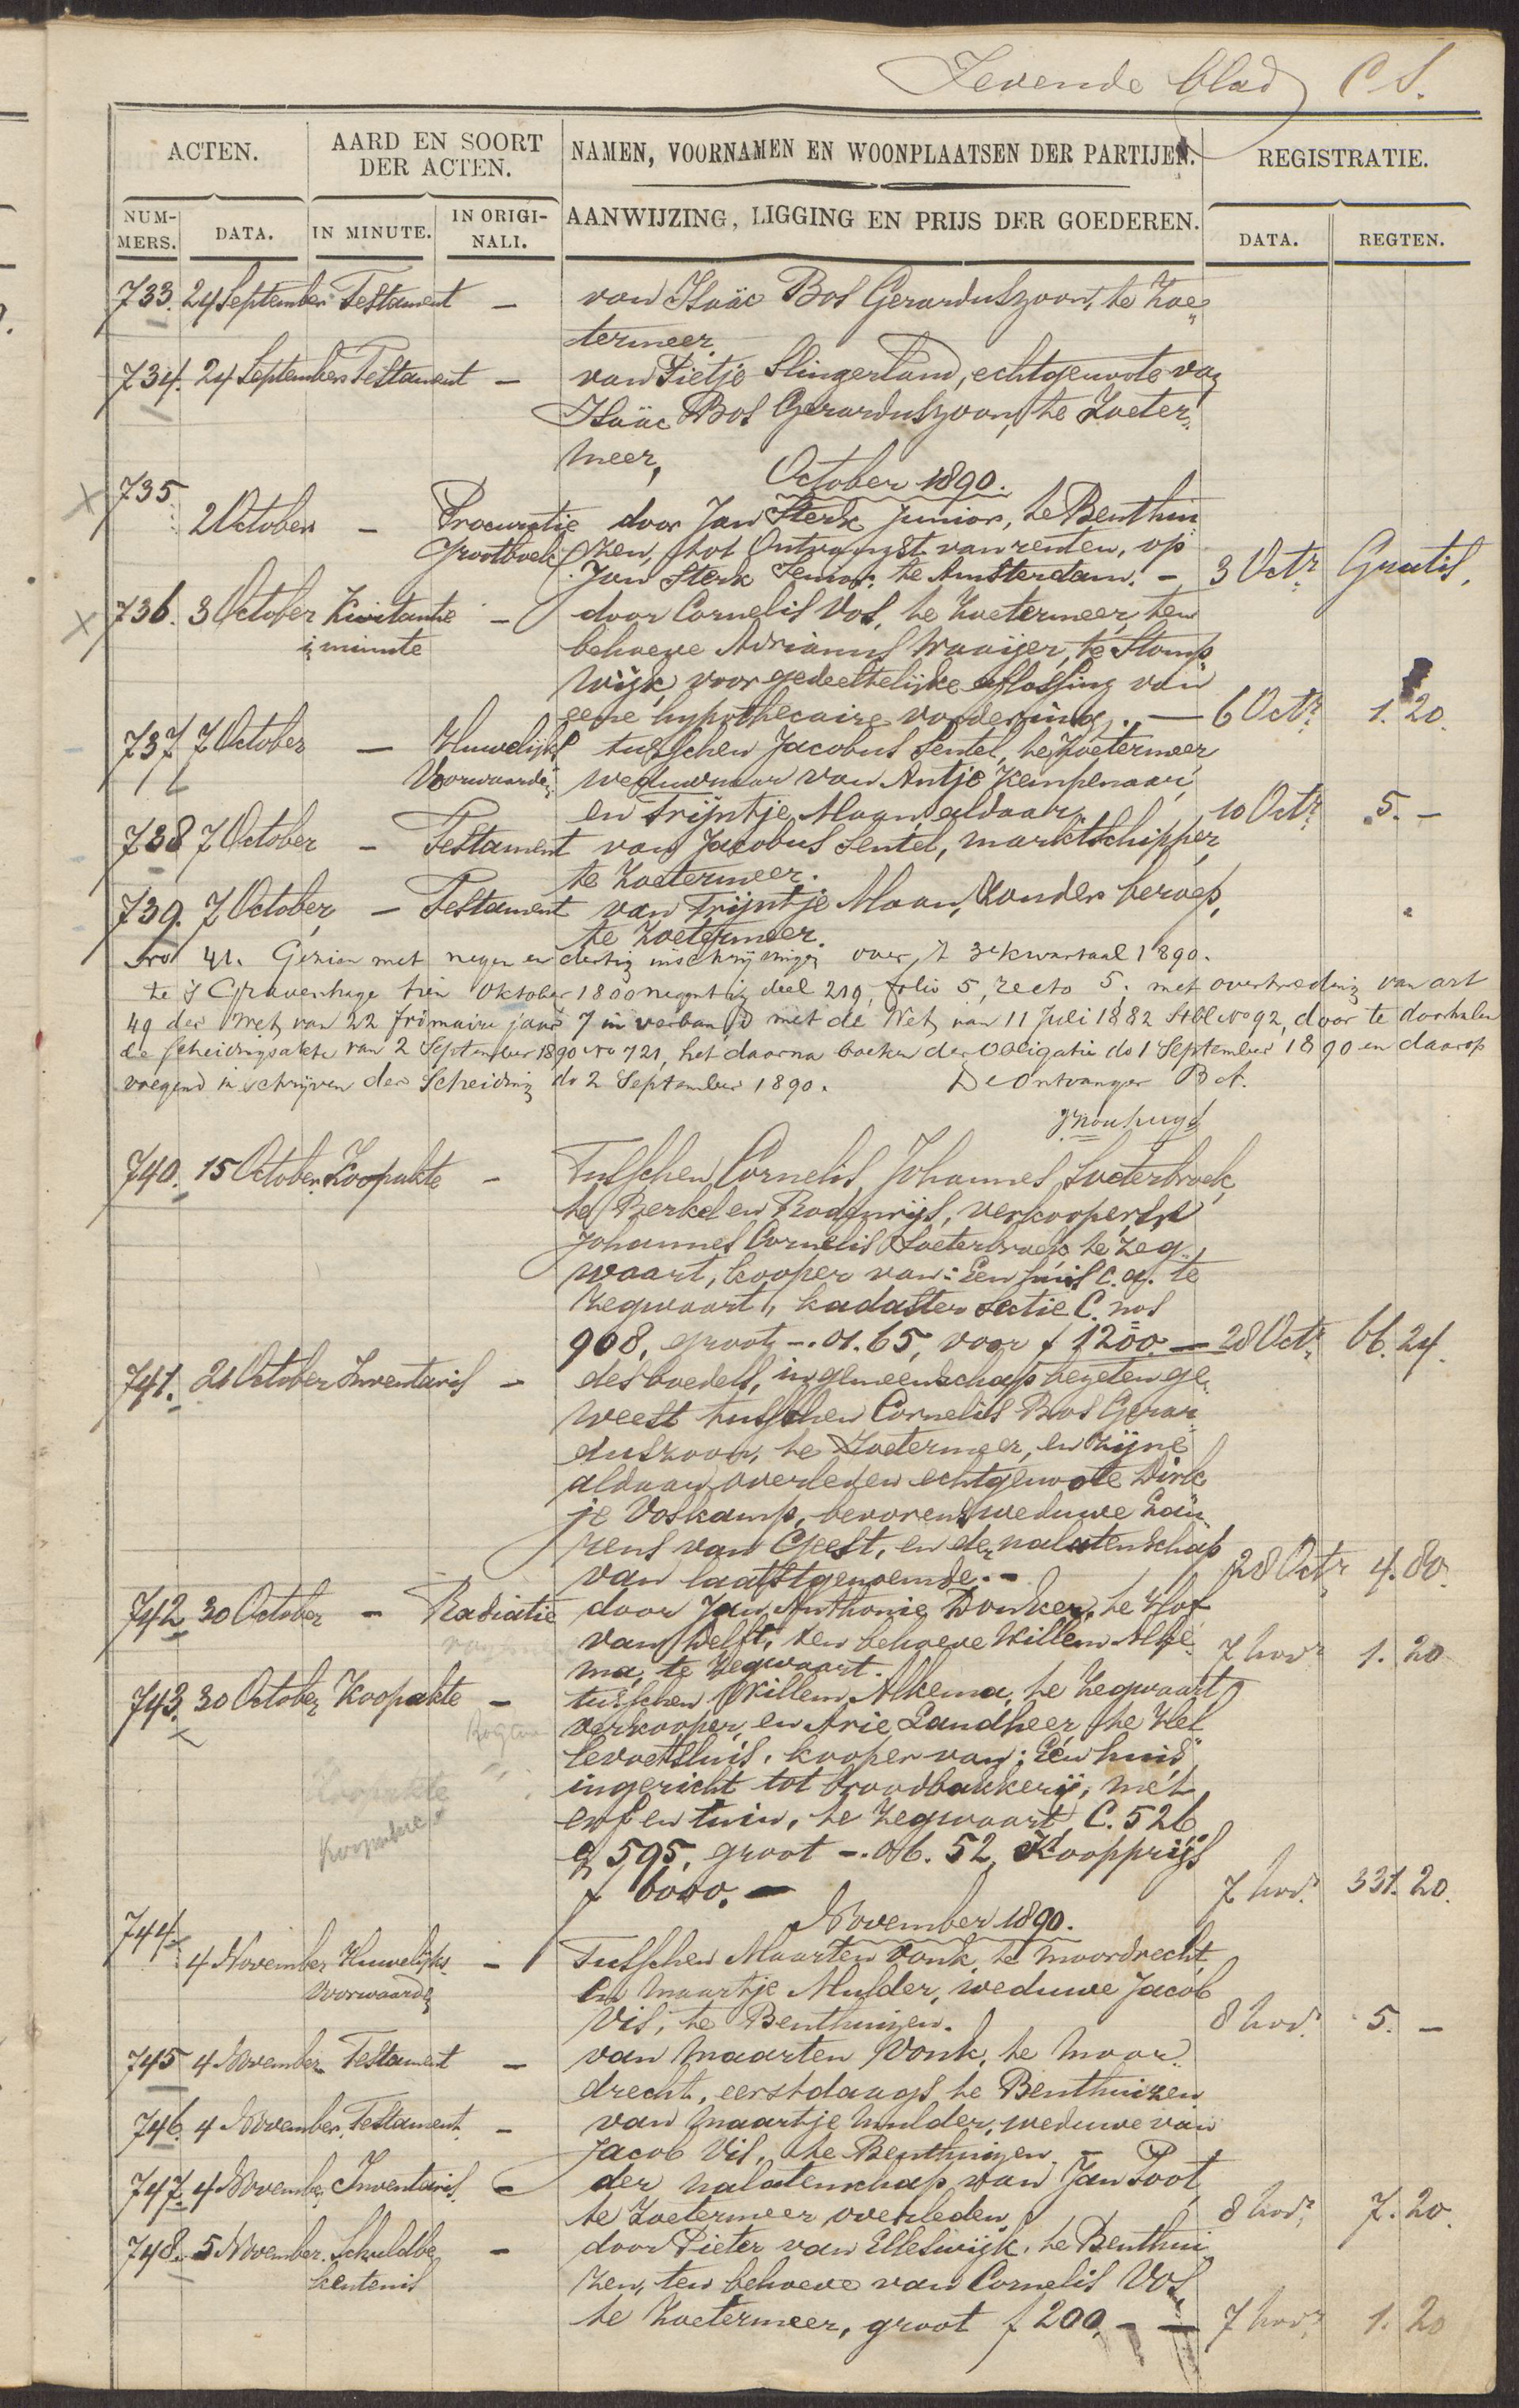 Zevende blad C S.
ACTEN. AARD EN SOORT DER ACTEN. NAMEN, VOORNAMEN EN WOONPLAATSEN DER PARTIJEN. REGISTRATIE.
NUMMERS. DATA. IN MINUTE. IN ORIGINALI. AANWIJZING, LIGGING EN PRIJS DER GOEDEREN. DATA. REGTEN.
733. 24 September Testament – van Isaäc Bos Gerarduszoon, te Zoe„
termeer.
734. 24 September Testament – van Pietje Slingerland, echtgenoote van
Isaäc Bos Gerarduszoon, te Zoeter„
meer,
October 1890.
735
2 October – Procuratie door Jan Sterk Junior, te Benthui
Grootboek zen, tot Ontvangst van renten, op
Jan Sterk Senior te Amsterdam. – 3 Octr Gratis.
736. 3 October Kwitantie – door Cornelis Vos, te Zoetermeer, ten
in minute behoeve Adrianus Waaijer, te Stomp„
wijk, voor gedeeltelijke aflossing van
eene hypothecaire vordering. – 6 Octr 1. 20.
737. 7 October – Huwelijks tusschen Jacobus Sentel, te Zoetermeer
Voorwaarden weduwnaar van Antje Kempenaar,
en Trijntje Maan, aldaar. 10 Octr 5. –
738 7 October – Testament van Jacobus Sentel, marktschipper,
te Zoetermeer.
739. 7 October, – Testament van Trijntje Maan, zonder beroep,
te Zoetermeer.
Nro 41. Gezien met negen en dertig inschrijvingen over 't 3e kwartaal 1890.
te 's Gravenhage tien Oktober 1800 negentig deel 219, folio 5, recto 5; met overtreding van art
49 der Wet van 22 frimaire jaar 7 in verband met de Wet van 11 Juli 1882 Stbl No 92, door te doorhalen
de scheidingsakte van 2 September 1890 No 721, het daarna boeken der Obligatie do 1 September 1890 en daarop
volgend inschrijven der Scheiding do 2 September 1890. De Ontvanger B.A.
740. 15 October Koopakte – Tusschen Cornelis Johannes Soeterbroek,
te Berkel en Rodenrijs, verkooper, en
Johannes Cornelis Soeterbroek te Zeg„
waart, kooper van: Een huis c.a. te
Zegwaart, kadaster Sectie C. nos
908, groot –.01.65, voor f 1200. – 28 Octr 66. 24.
741. 21 October Inventaris – des boedels, in gemeenschap bezeten ge„
weest tusschen Cornelis Bos Gerar„
duszoon, te Zoetermeer, en zijne
aldaar overleden echtgenoote Dirk
je Voskamp, bevorens weduwe Lau„
rens van Geest, en der nalatenschap
van laatstgenoemde. – 28 Octr 4. 80.
742. 30 October – Radiatie door Jan Anthonie Donker, te Hof
van Delft, ten behoeve Willem Alke
ma, te Zegwaart. 7 Novr 1. 20
743. 30 October Koopakte – tusschen Willem Alkema, te Zegwaart,
verkooper, en Arie Landheer, te Hel
levoetsluis, kooper van: Een huis
ingericht tot broodbakkerij, met
erf en tuin, te Zegwaart, C. 526
en 595, groot –.06.52, Koopprijs
Koopakte
f 6000. – 7 Novr. 331. 20.
November 1890.
744
4 November Huwelijks – Tusschen Maarten Vonk, te Moordrecht,
Voorwaarden en Maartje Mulder, weduwe Jacob
Vis, te Benthuizen. 8 Novr. 5. –
745 4 November Testament – van Maarten Vonk, te Moor„
drecht, eerstdaags te Benthuizen
746. 4 November Testament. – van Maartje Mulder, weduwe van
Jacob Vis, te Benthuizen –
747. 4 November Inventaris. – der nalatenschap van Jan Poot,
te Zoetermeer overleden, 8 Novr. 7. 20.
748. 5 November. Schuldbe – door Pieter van Elleswijk, te Benthui
kentenis zen, ten behoeve van Cornelis Vos,
te Zoetermeer, groot f 200. – – 7 Novr. 1. 20